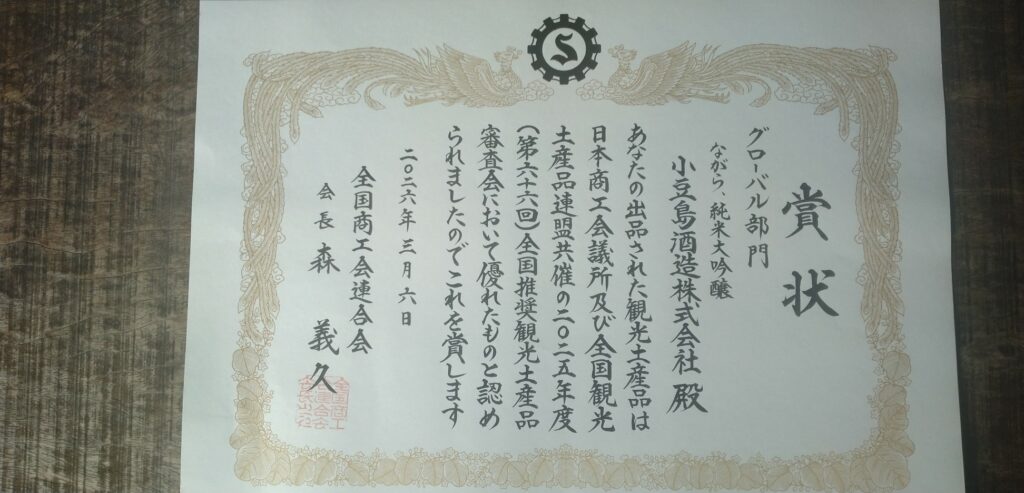 S
賞状
グローバル部門
ながら、純米大吟醸
小豆島酒造株式会社 殿
あなたの出品された観光土産品は
日本商工会議所及び全国観光
土産品連盟共催の二〇二五年度
(第六十六回)全国推奨観光土産品
審査会において優れたものと認め
られましたのでこれを賞します
二〇二六年三月六日
全国商工会連合会
会長 森 義久